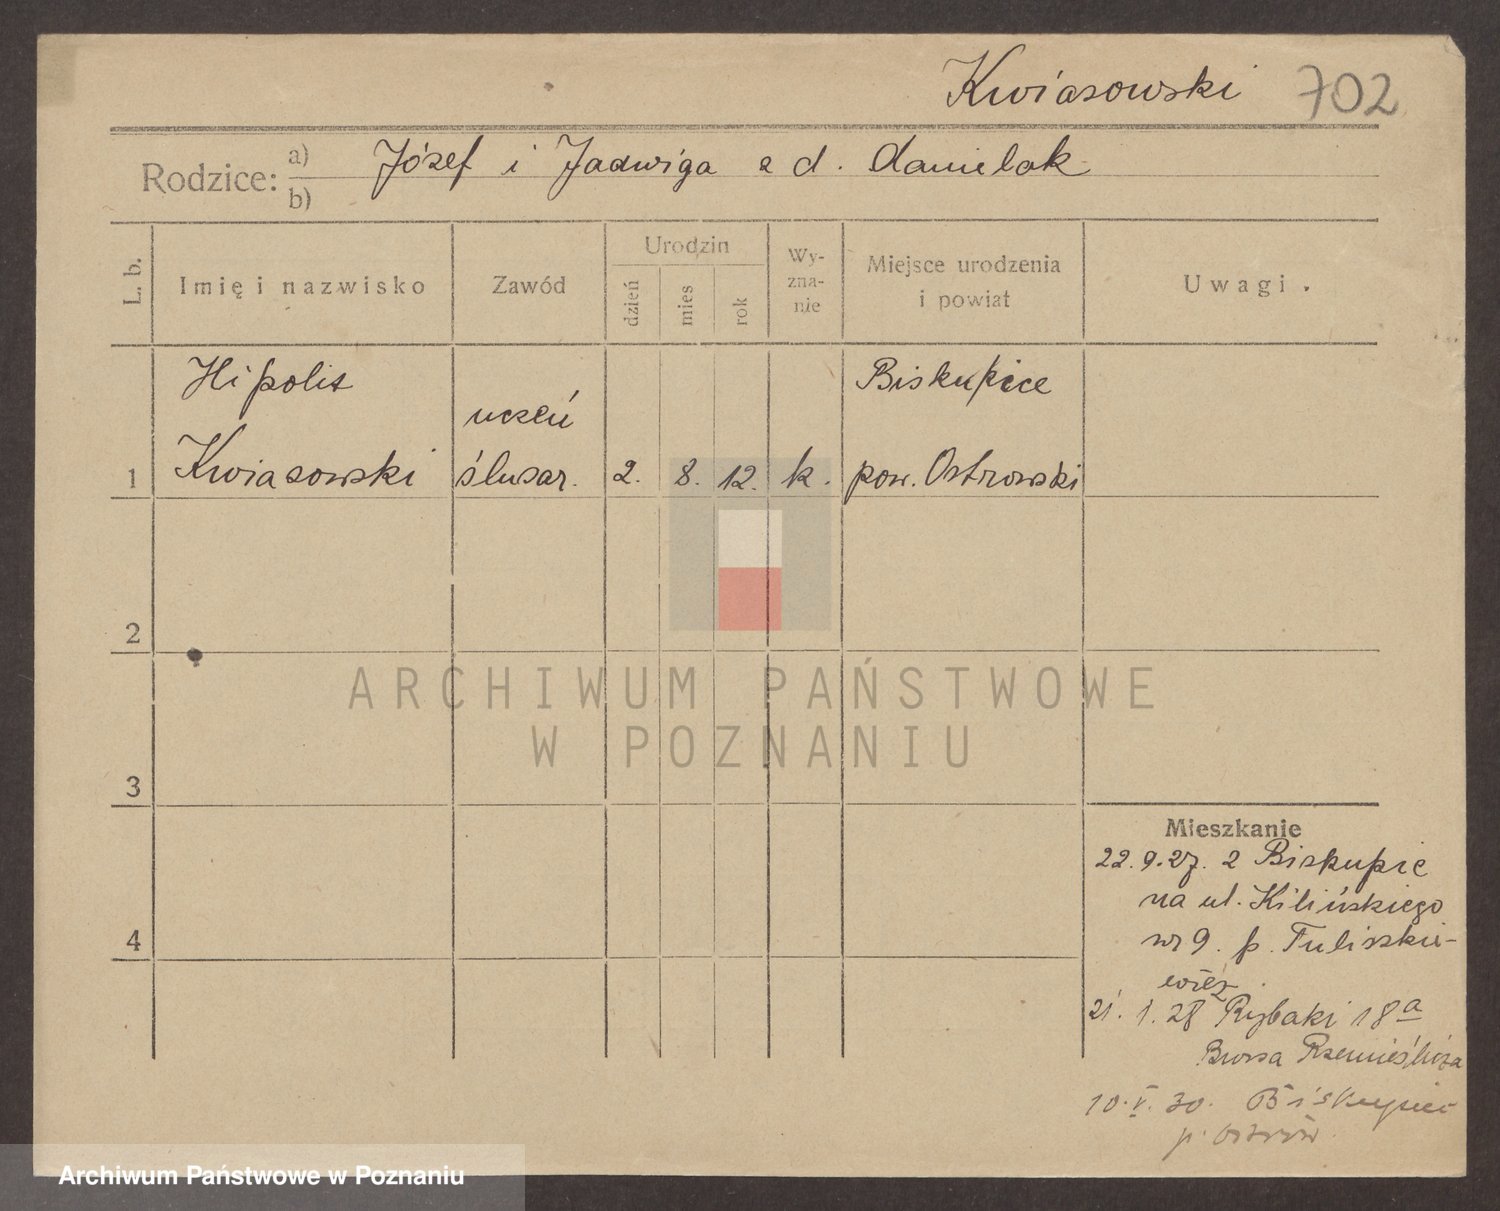 Kwiasowski 702
Rodzice: a) Józef i Jadwiga z d. Danielak
b)
L. b. Imię i nazwisko Zawód Urodzin dzień mies rok Wy-zna-nie Miejsce urodzenia i powiat Uwagi.
Hipolit uczeń Biskupice
1 Kwiasowski ślusar. 2. 8. 12. k. pow. Ostrowski
2
3
4
Mieszkanie
22.9.27. z Biskupic
na ul. Kilińskiego
nr 9. p. Tuliszkie-
wicz.
21. 1. 28 Rybaki 18a
Bursa Rzemieślnicza
10. V. 30. Biskupice
p. Ostrów
ARCHIWUM PAŃSTWOWE
W POZNANIU
Archiwum Państwowe w Poznaniu